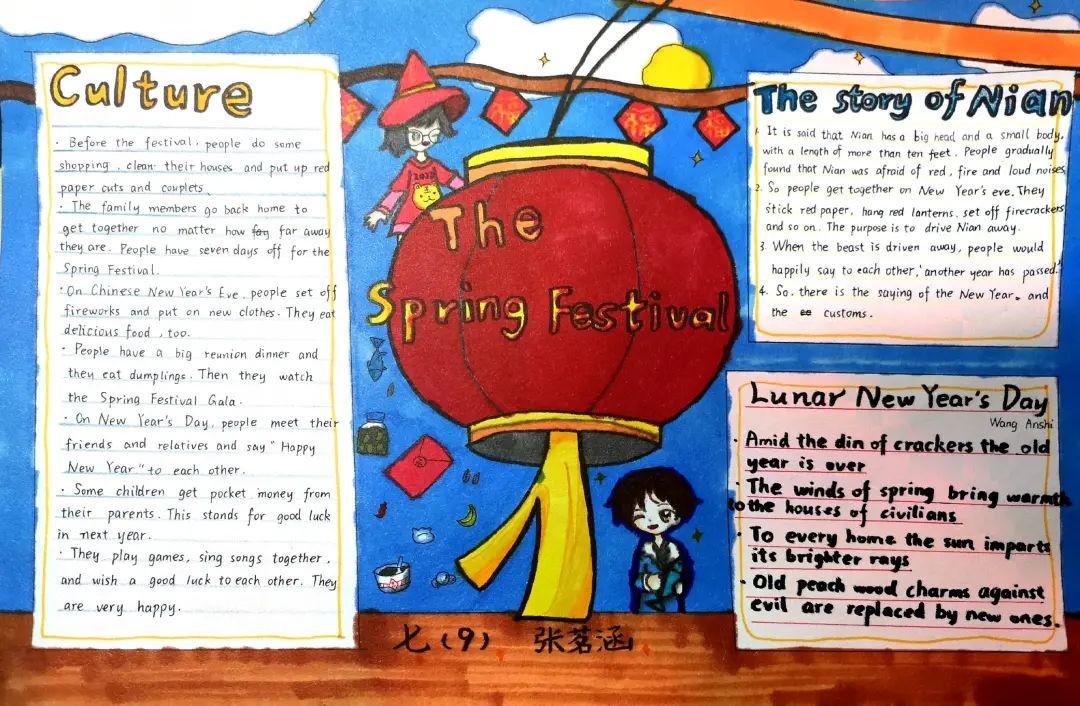 Culture
· Before the festival, people do some
shopping, clean their houses and put up red
paper cuts and couplets.
· The family members go back home to
get together no matter how far away
they are. People have seven days off for the
Spring Festival.
· On Chinese New Year's Eve, people set off
fireworks and put on new clothes. They eat
delicious food, too.
· People have a big reunion dinner and
they eat dumplings. Then they watch
the Spring Festival Gala.
· On New Year's Day, people meet their
friends and relatives and say "Happy
New Year" to each other.
· Some children get pocket money from
their parents. This stands for good luck
in next year.
· They play games, sing songs together,
and wish a good luck to each other. They
are very happy.
2022
The
Spring Festival
The story of Nian
1. It is said that Nian has a big head and a small body,
with a length of more than ten feet. People gradually
found that Nian was afraid of red, fire and loud noises
2. So people get together on New Year's eve. They
stick red paper, hang red lanterns, set off firecrackers
and so on. The purpose is to drive Nian away.
3. When the beast is driven away, people would
happily say to each other, 'another year has passed.'
4. So, there is the saying of the New Year, and
the customs.
Lunar New Year's Day
Wang Anshi
· Amid the din of crackers the old
year is over
· The winds of spring bring warmth
to the houses of civilians
· To every home the sun imparts
its brighter rays
· Old peach wood charms against
evil are replaced by new ones.
七(9) 张茗涵